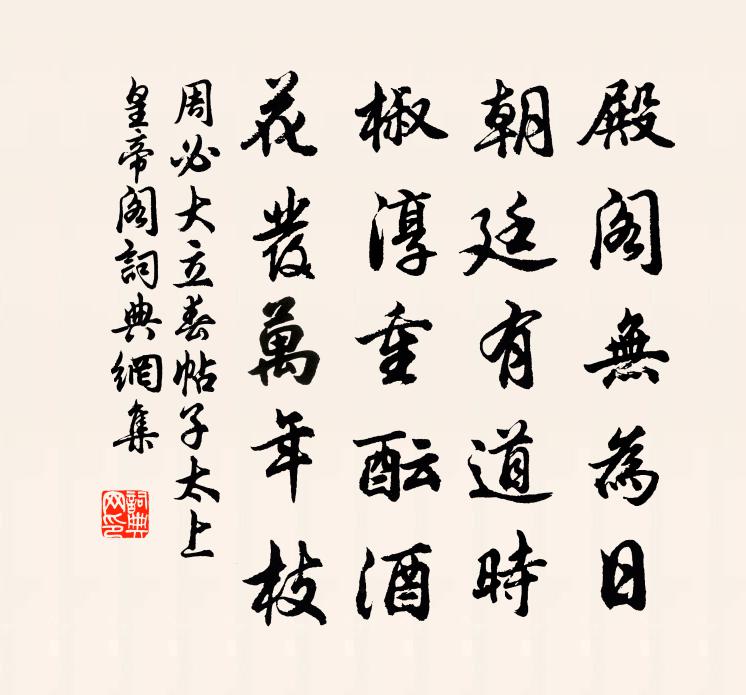 殿閣無為日
朝廷有道時
椒淳重酝酒
花發萬年枝
周必大立春帖子太上
皇帝阁詞典網集
詞典网印